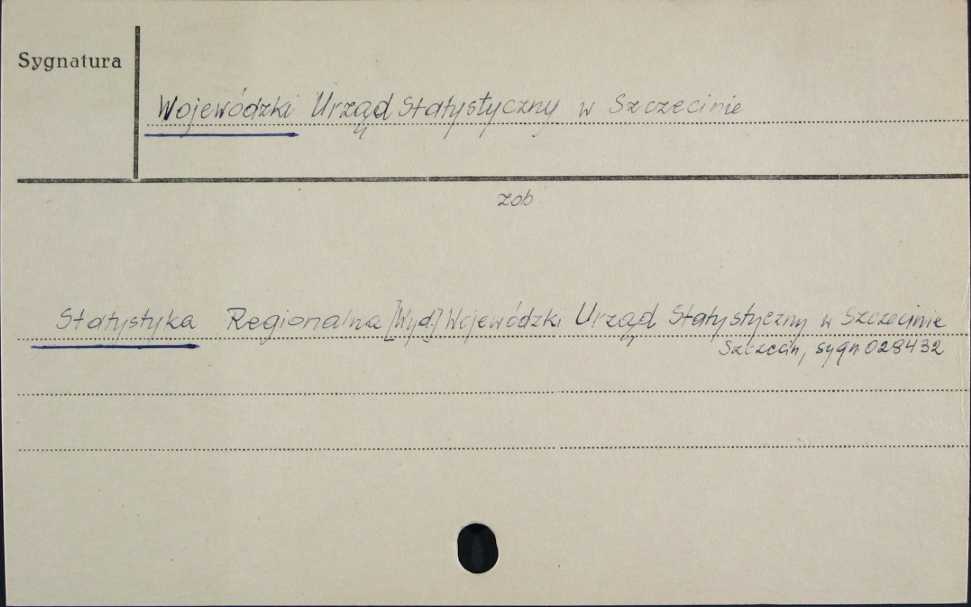 Sygnatura
Wojewódzki Urząd Statystyczny w Szczecinie
zob
Statystyka Regionalna [Wyd.] Wojewódzki Urząd Statystyczny w Szczecinie
Szczecin, sygn 028432